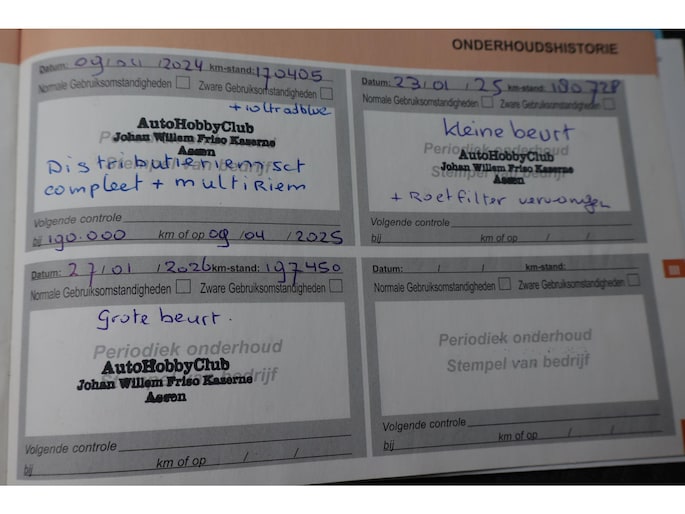 ONDERHOUDSHISTORIE
Datum: 09/04/2024 km-stand: 170405
Normale Gebruiksomstandigheden Zware Gebruiksomstandigheden
+ 10ltr adblue
AutoHobbyClub
Johan Willem Friso Kazerne
Assen
Distributieriemset
compleet + multiRiem
Volgende controle
bij 190.000 km of op 09/04/2025
Datum: 23/01/25 km-stand: 180728
Normale Gebruiksomstandigheden Zware Gebruiksomstandigheden
kleine beurt
Periodiek onderhoud
AutoHobbyClub
Johan Willem Friso Kazerne
Stempel van bedrijf
Assen
+ Roetfilter vervangen
Volgende controle
bij km of op / /
Datum: 27/01/2026 km-stand: 197450
Normale Gebruiksomstandigheden Zware Gebruiksomstandigheden
Grote beurt.
Periodiek onderhoud
AutoHobbyClub
Stempel van bedrijf
Johan Willem Friso Kazerne
Assen
Volgende controle
bij km of op / /
Datum: / / km-stand:
Normale Gebruiksomstandigheden Zware Gebruiksomstandigheden
Periodiek onderhoud
Stempel van bedrijf
Volgende controle
bij km of op / /